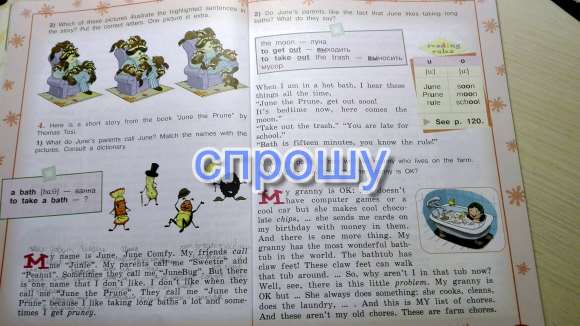 3) Which of these pictures illustrate the highlighted sentences in
the story? Put the correct letters. One picture is extra.
4. Here is a short story from the book "June the Prune" by
Thomas Tosi.
1) What do June's parents call June? Match the names with the
pictures. Consult a dictionary.
a bath [bɑːθ] — ванна
to take a bath — ?
My name is June, June Comfy. My friends call
me "Junie". My parents call me "Sweetie" and
"Peanut". Sometimes they call me "JuneBug". But there
is one name that I don't like. I don't like when they
call me "June the Prune". They call me "June the
Prune" because I like taking long baths a lot and some-
times I get pruney.
2) Do June's parents like the fact that June likes taking long
baths? What do they say?
the moon — луна
to get out — выходить
to take out the trash — выносить
мусор
reading
rules
u o
[uː] [uː]
June soon
Prune moon
rule school
See p. 120.
When I am in a hot bath, I hear these
things all the time,
"June the Prune, get out soon!
It's bedtime now, here comes the
moon."
"Take out the trash." "You are late for
school."
"Bath is fifteen minutes, you know the rule!"
who lives on the farm.
granny is OK?
спрошу
My granny is OK: doesn't
have computer games or a
cool car but she makes cool choco-
late chips, ... she sends me cards on
my birthday with money in them.
And there is one more thing. My
granny has the most wonderful bath-
tub in the world. The bathtub has
claw feet! These claw feet can walk
that tub around. ... So, why aren't I in that tub now?
Well, see, there is this little problem. My granny is
OK but ... She always does something: she cooks, cleans,
does the laundry, ... . And this is MY list of chores.
And these aren't my old chores. These are farm chores.